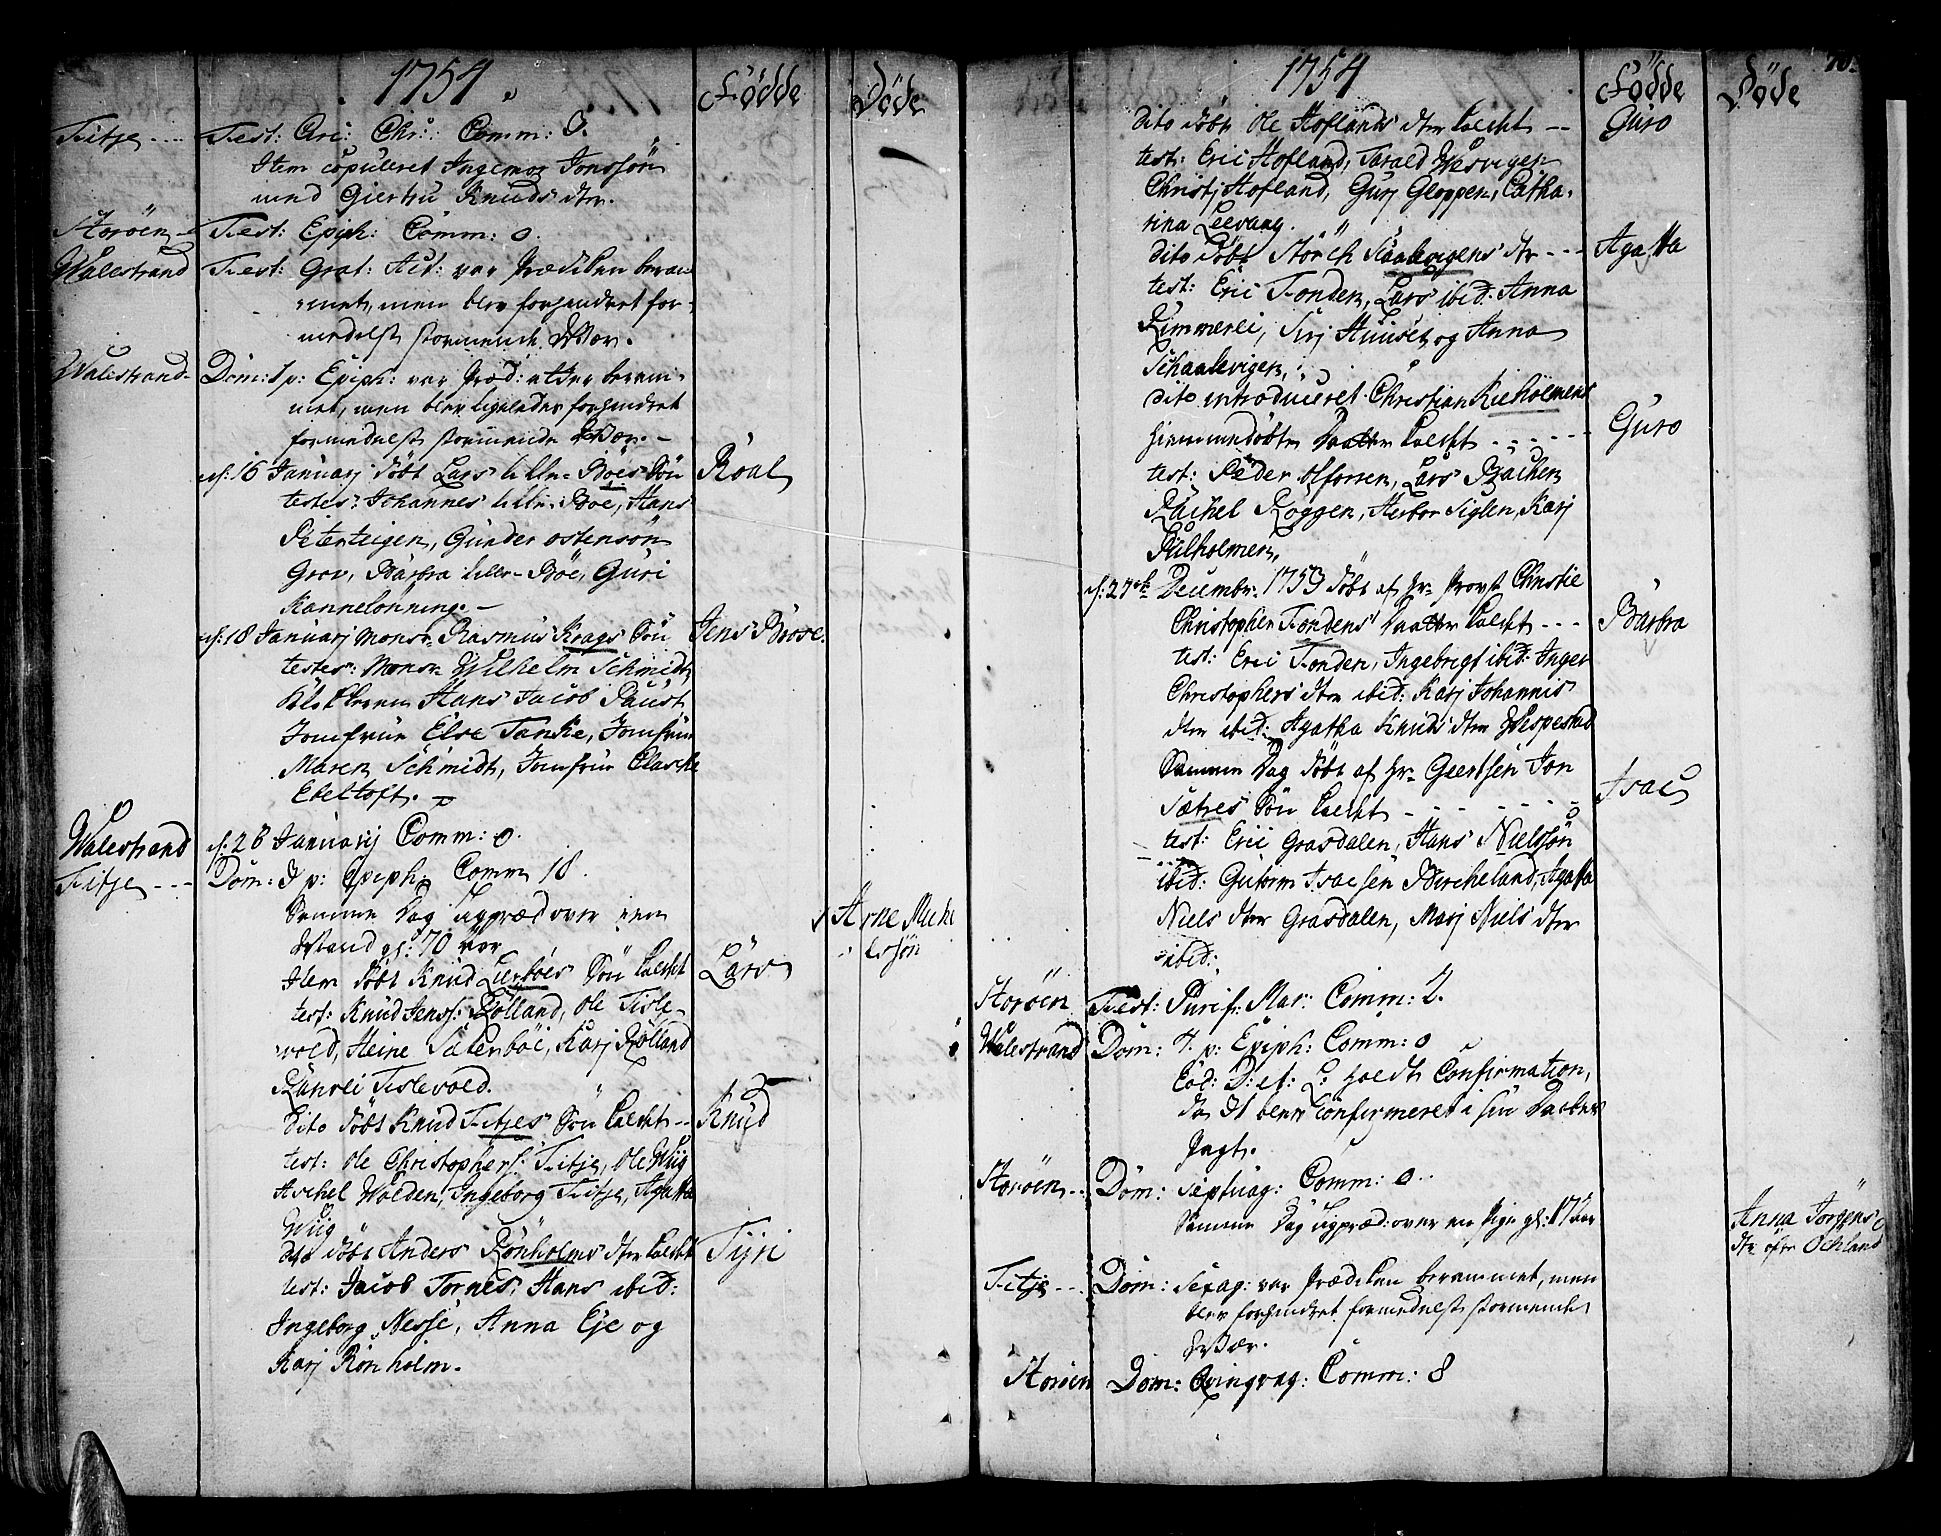 1754
Födde
Döde
Fitje Fest: Circ: Chr: Comm: 0.
Item copuleret Ingemor Jonssön
med Giertru Knuds dtr.
Storöen Fest: Epiph: Comm: 0.
Walestrand Fest: Grat: Act: var Prædiken beram
met, men blev forhindret for-
medelst stormende Wær.
Walestrand Dom: 1 p: Epiph: var Præd: atter beram-
met, men blev ligeledes forhindret
formedelst stormende Wær.
d: 16 Januarj döbt Lars Lille-Böes Sön Roal
testes: Johannes Lille-Böe, Hans
Petersteigen, Gunder Ostensön
Grov, Barbra Lille-Böe, Guri
Kannelönning.
d: 18 Januarj Monsr Rasmus Krags Sön Jens Böose.
testes: Monsr Wilhelm Schmidt,
Klokkeren Hans Jacob Paust
Jomfrue Else Tanke, Jomfrue
Maren Schmidt, Jomfrue Clasche
Ebeltoft.
Walestrand d: 26 Januarij Comm: 0.
Fitje Dom: 3 p: Epiph: Comm 18.
Samme Dag ligpræd over een Arne Miche
Mand gl: 70 aar lssön
Item döbt Knud Lierböes Sön kaldet Lars
test: Knud Jenss: Rölland, Ole Tisle-
vold, Heine Sæterböe, Karj Rölland
Ranvei Tislevold.
Dito döbt Knud Fitjes Sön kaldet Knud
test: Ole Christophers: Fitje, Ole Wiig
Aschel Wolden, Ingeborg Fitje, Agatta
Wiig
dito döbt Anders Rönholms dtr kaldet Tyri
test: Jacob Tornes, Hans ibid:
Ingeborg Nesse, Anna Eje og
Karj Rönholm.
1754
Födde
Döde
70.
dito döbt Ole Hoflands dtr kaldet Guro
test: Eric Hofland, Tarald Wesvigen
Christj Hofland, Gurj Gloppen, Catha-
rina Leevaag.
dito döbt Störch Skaalevigens dtr Agatta
test: Eric Fonden, Lars ibid: Anna
Rimmerei, Sirj Huuset og Anna
Schaalevigen.
dito introduceret Christian Kieholmens
hiemmedöbte Daatter kaldet Guro
test: Peder Olsonen, Lars Backen
Rachel Roggen, Herbor Siglen, Karj
Kulholmen.
d: 27de Decembr: 1753 döbt af Hr Provst Christie
Christopher Fondens Daatter kaldet Barbra
test: Eric Fonden, Ingebrigt ibid: Inger
Christophers dtr ibid: Karj Johannis
dtr ibid: Agatha Knuds dtr Wespestad
Samme Dag döbt af Hr Geertsen Jon
Sætres Sön kaldet Isac
test: Eric Grasdalen, Hans Nielssön
ibid: Gutorm Isacsen Bircheland, Agatta
Niels dtr Grasdalen, Marj Niels dtr
ibid:
Storöen Fest: Purif: Mar: Comm: 2.
Walestrand Dom: 4. p: Epiph: Comm: 0
Eod: D: et: L: holdt Confirmation,
da 31 blev Confirmeret i sin Daabes
Pagt.
Storöen Dom: Septuag: Comm: 0
Samme Dag ligpræd: over en Pige gl: 17 aar Anna Jörgens
dtr öfre Öchland
Fitje Dom: Sexag: var Prædiken berammet, men
blev forhindret formedelst stormende
Wær.
Storöen Dom: Qvinqvag: Comm: 8